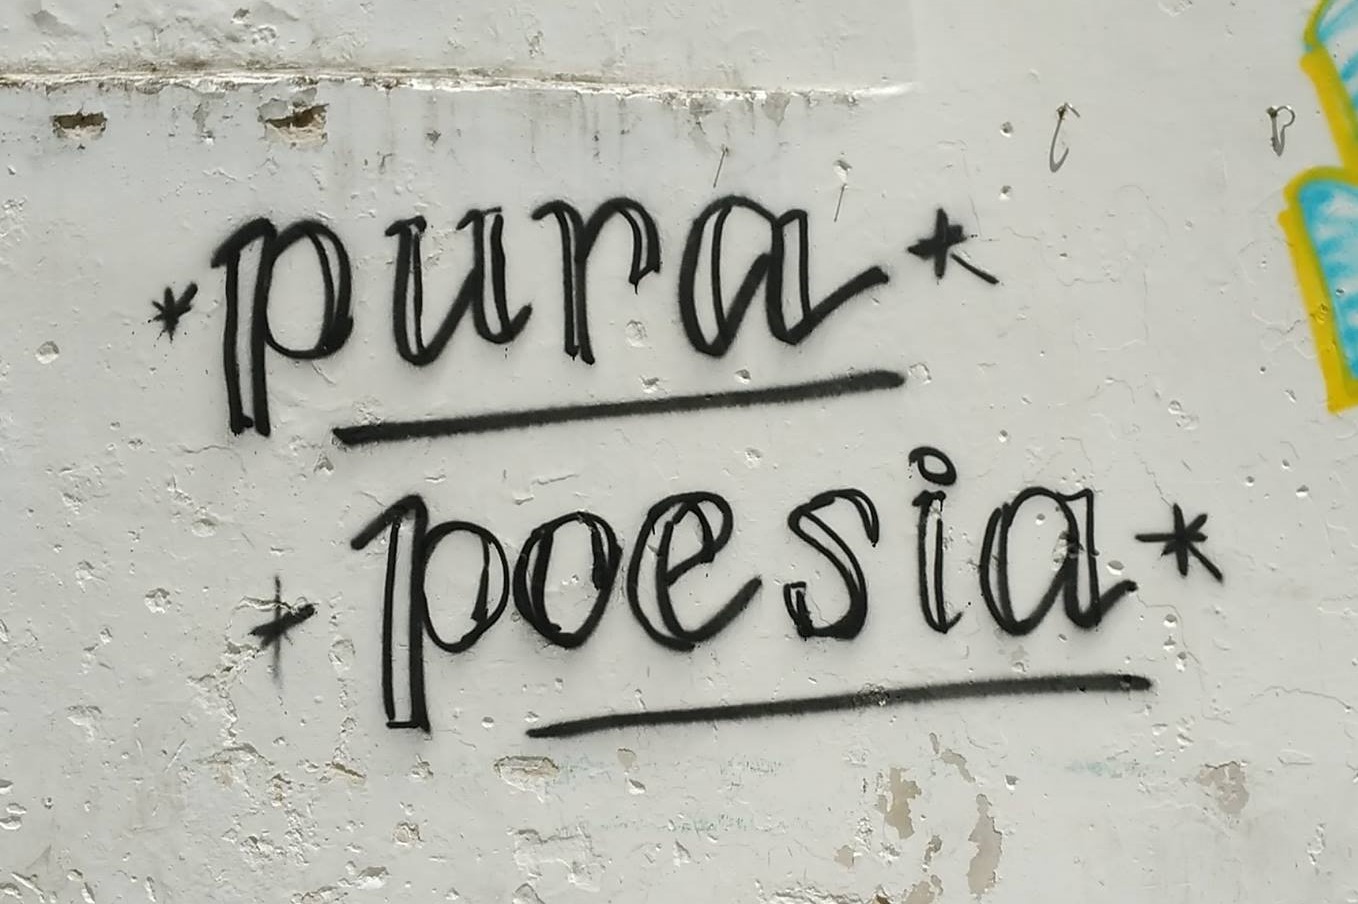 *pura*
*poesia*